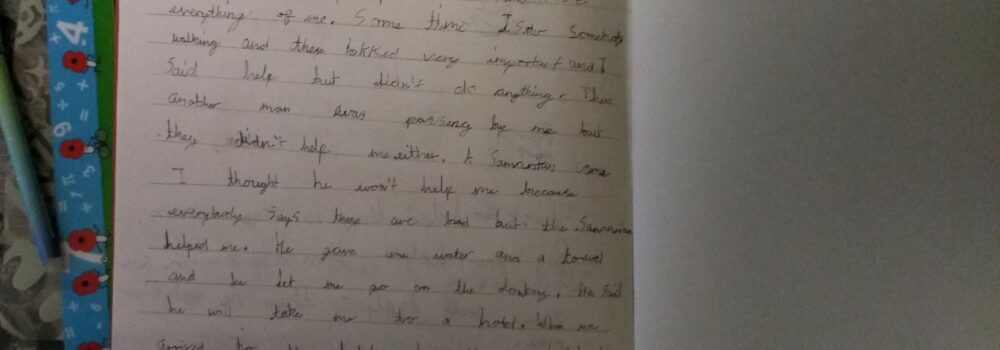 everything of me. Some time I saw somebody
walking and they lokked very important and I
said help but didn't do anything. Then
another man was passing by me but
they didn't help me either. A Samaritan came
I thought he won't help me because
everybody says they are bad but the Samaritan
helped me. He gave me water and a towel
and he let me go on the donkey. He said
he will take me to a hotel. When we
arrived